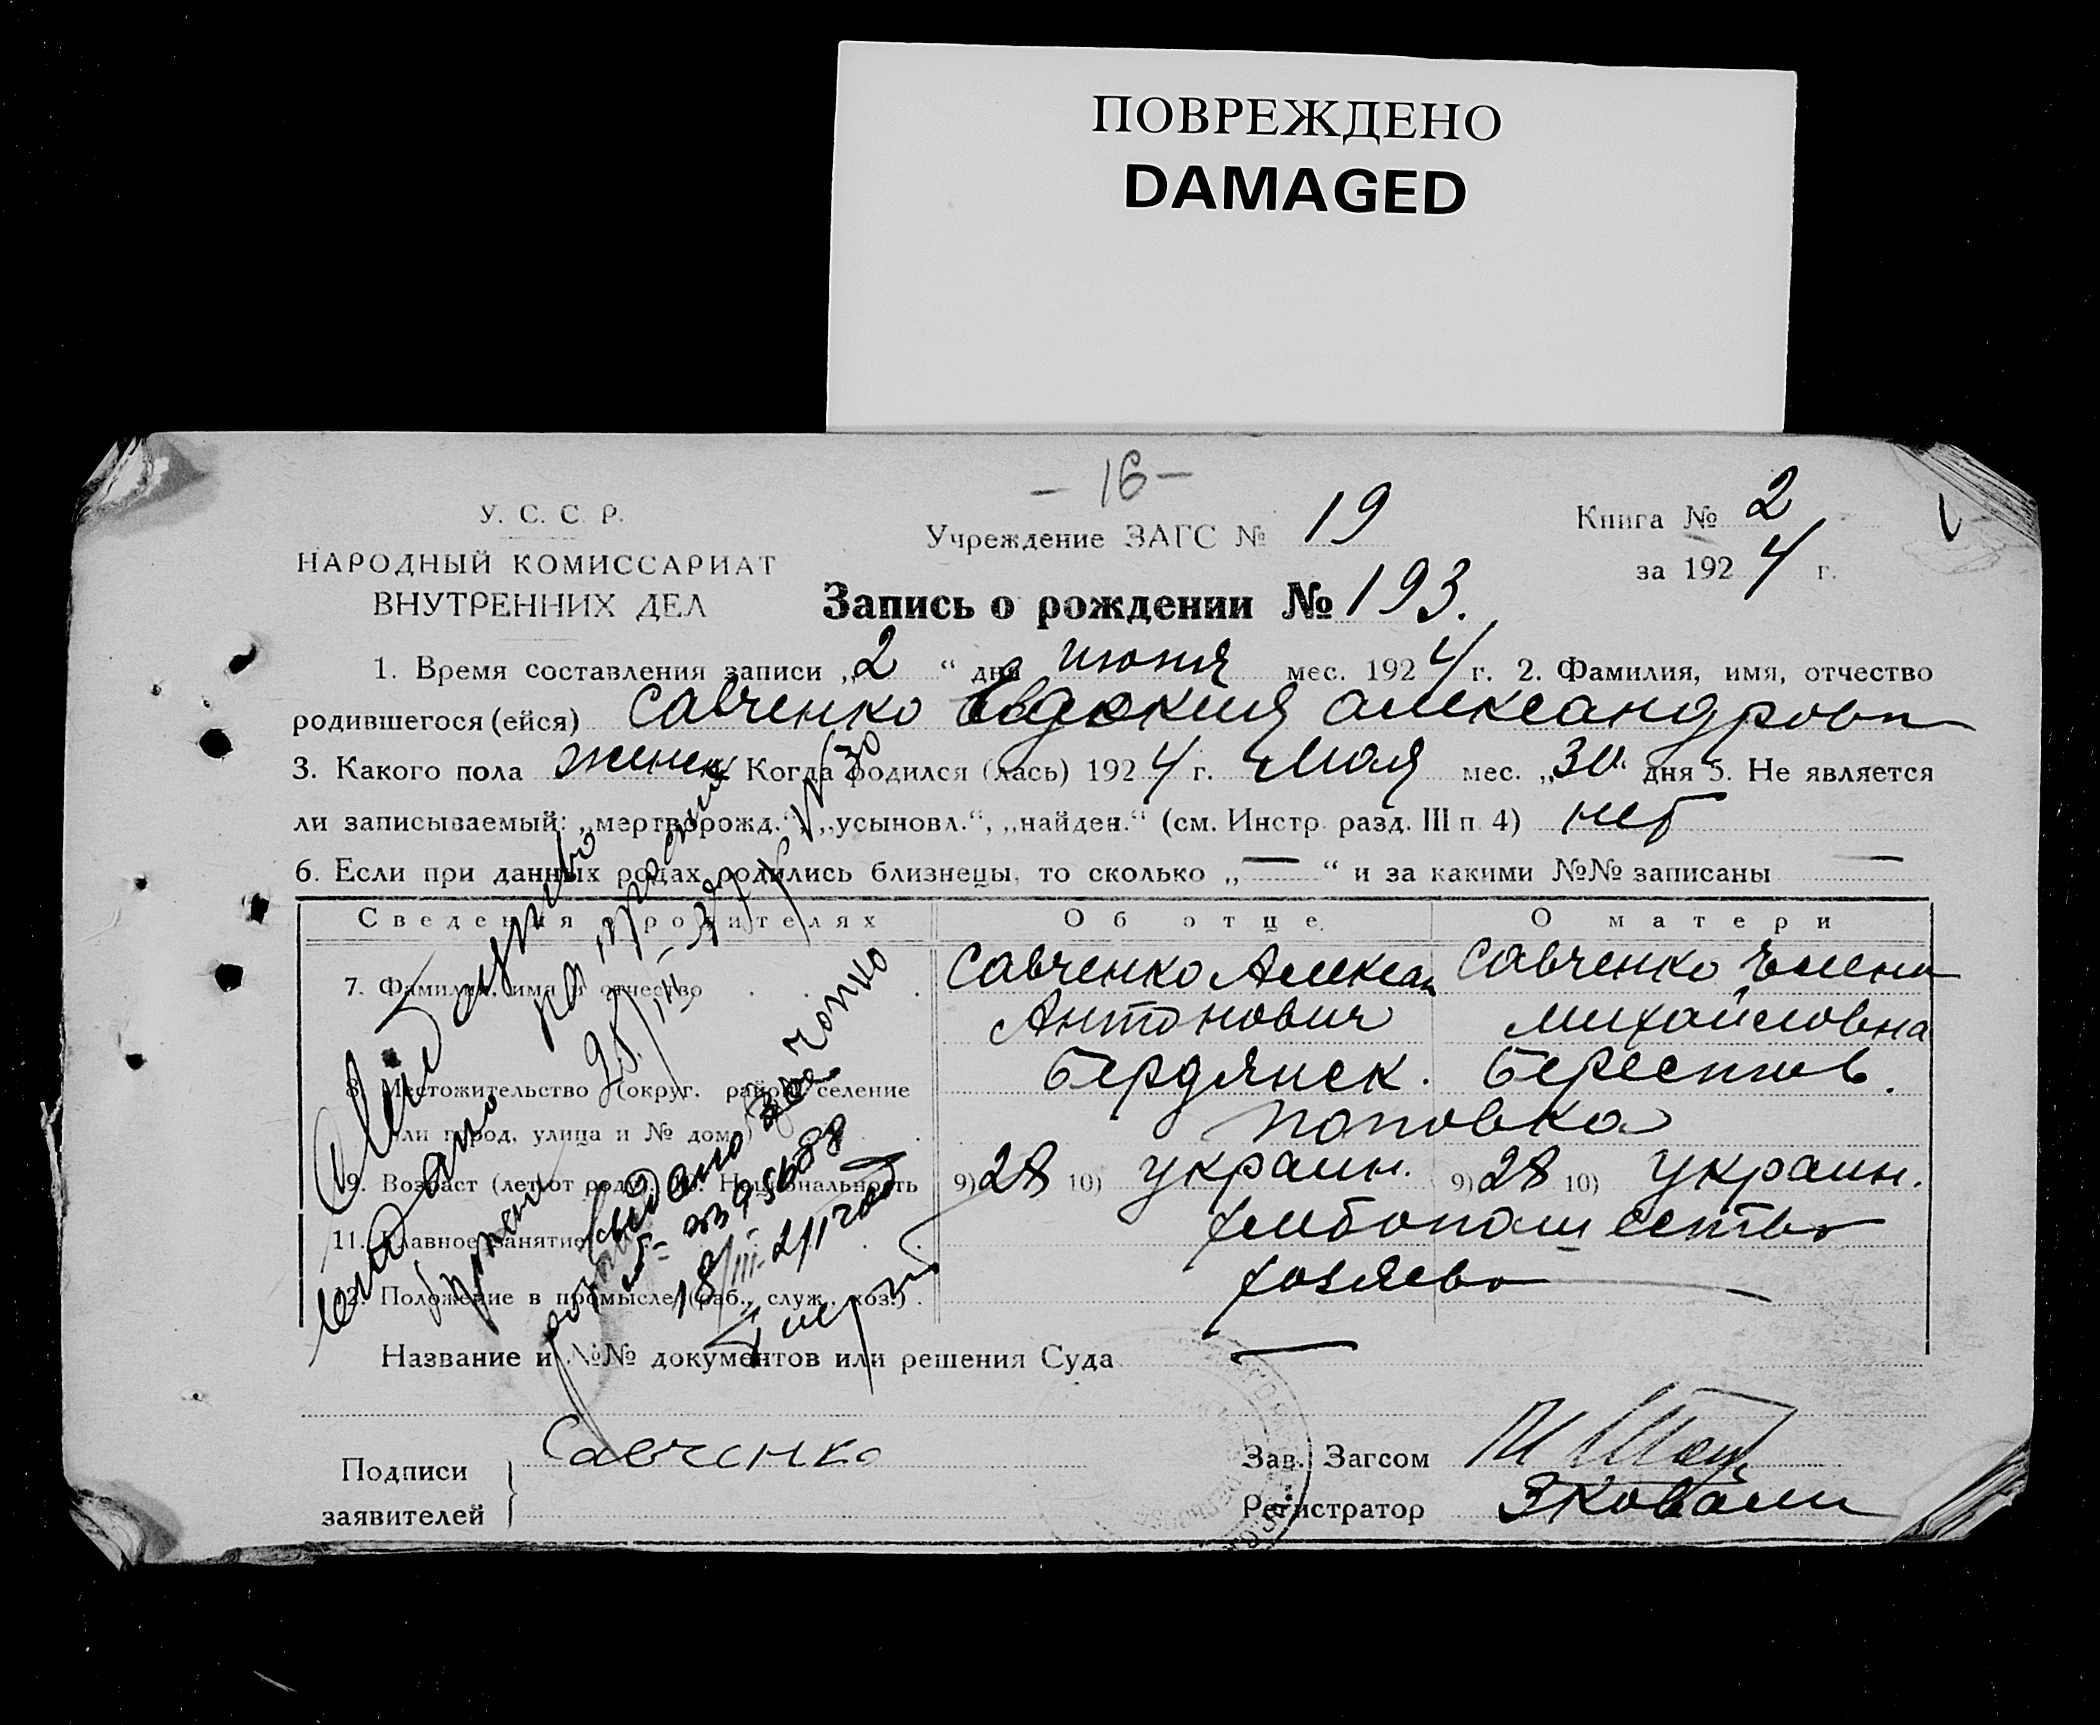 ПОВРЕЖДЕНО
DAMAGED
– 16 –
У. С. С. Р.
НАРОДНЫЙ КОМИССАРИАТ
ВНУТРЕННИХ ДЕЛ
Учреждение ЗАГС № 19
Книга № 2
за 1924 г.
Запись о рождении № 193.
1. Время составления записи „2“ дня июня мес. 1924 г. 2. Фамилия, имя, отчество
родившегося (ейся) Савченко Евдокия Александровн
3. Какого пола женск Когда родился (лась) 1924 г. Мая мес. „30“ дня 5. Не является
ли записываемый: „мертворожд.“, „усыновл.“, „найден.“ (см. Инстр. разд. III п. 4) нет
6. Если при данных родах родились близнецы, то сколько „—“ и за какими №№ записаны —
Сведения о родителях Об отце О матери
7. Фамилия, имя и отчество Савченко Алексан Савченко Елена
Антонович Михайловна
8. Местожительство (округ, район, селение Бердянск. Берестов.
или город, улица и № дома) Поповка
9. Возраст (лет от роду) 10. Национальность 9) 28 10) украин. 9) 28 10) украин.
11. Главное занятие хлебопашество
12. Положение в промысле (раб., служ., хоз.) хозяева
Название и №№ документов или решения Суда —
выдано
18/III
Подписи
заявителей
Савченко
Зав. Загсом
Регистратор